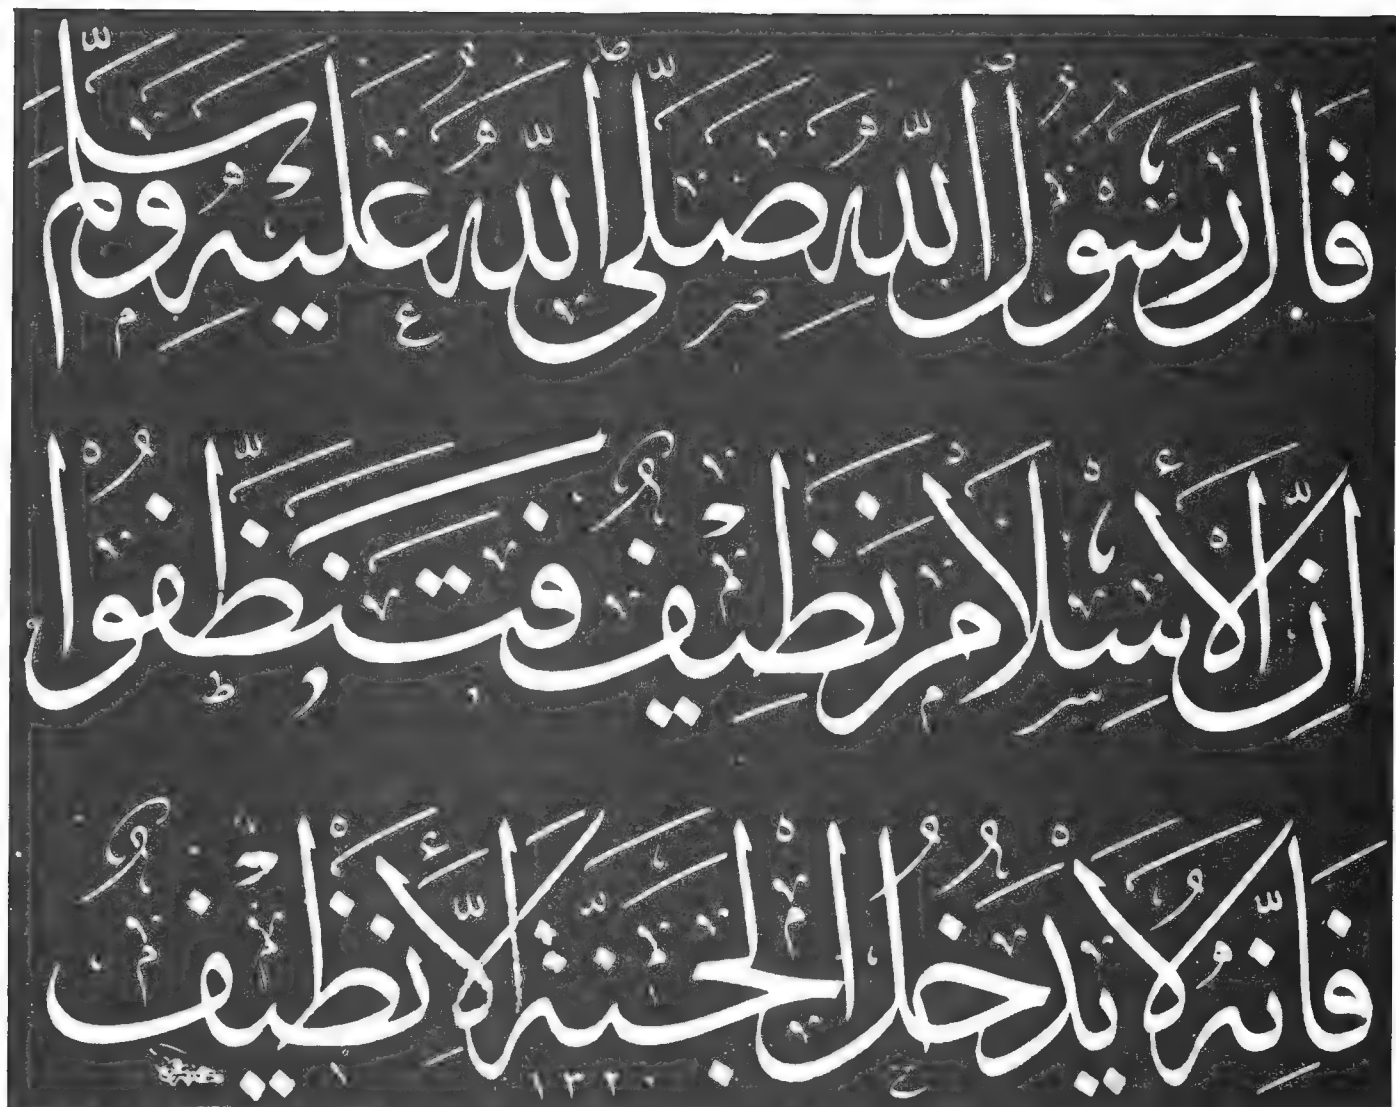 قَالَ رَسُولُ اللّٰهِ صَلَّى اللّٰهُ عَلَيْهِ وَسَلَّمَ
اِنَّ الْأِسْلَامَ نَظِيْفٌ فَتَنَظَّفُوْا
فَاِنَّهُ لَا يَدْخُلُ الْجَنَّةَ اِلَّا نَظِيْفٌ